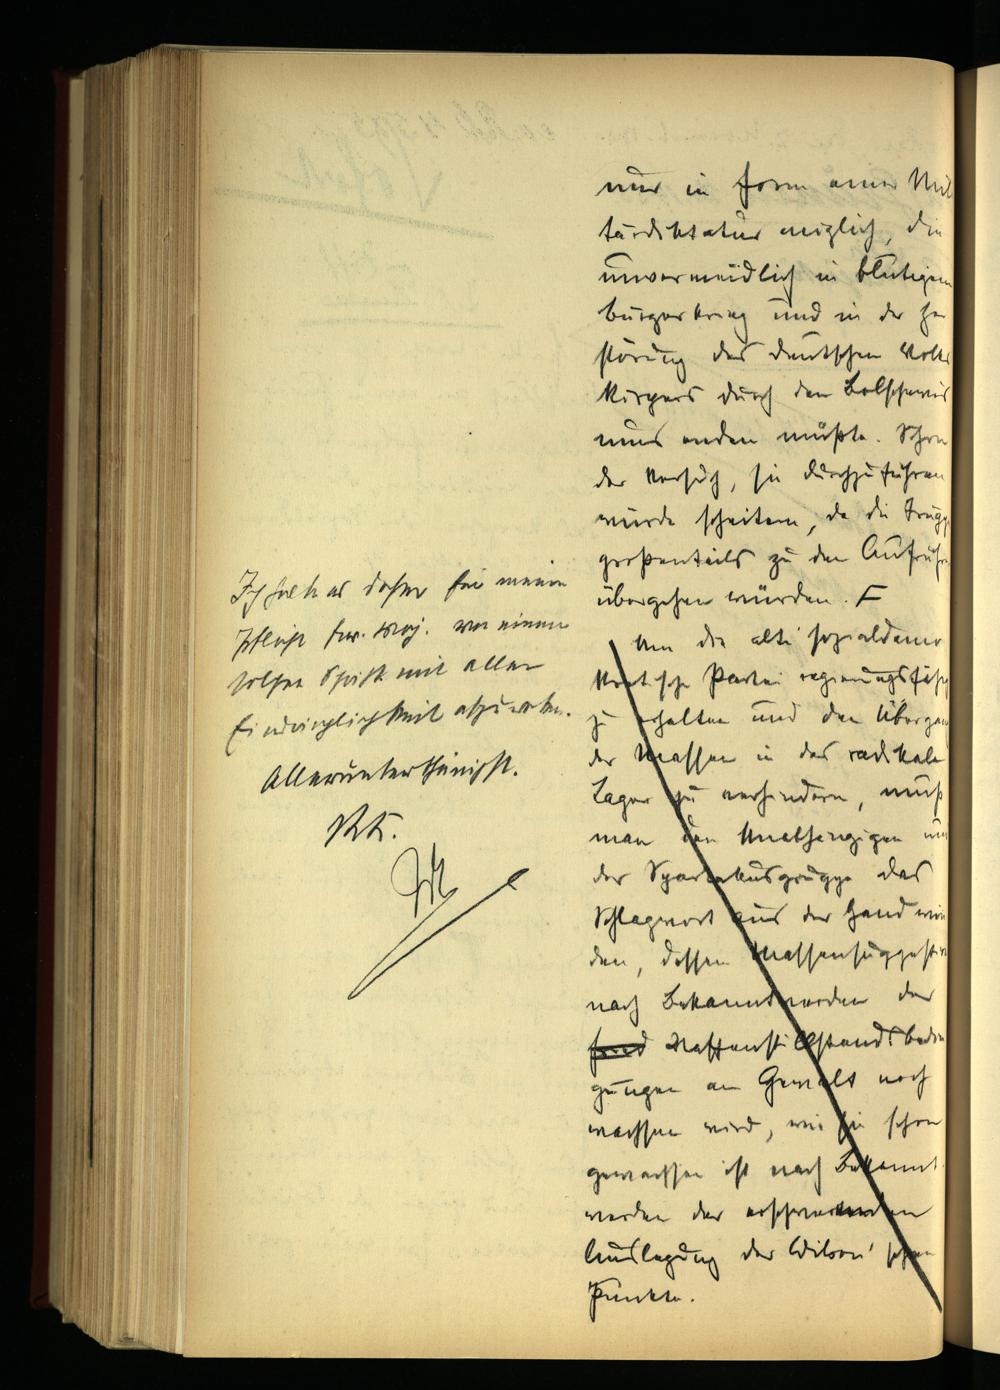 nur in Form einer Mili
tärdiktatur möglich, die
unvermeidlich in blutigem
Bürgerkrieg und in der Zer
störung des deutschen Volks
körpers durch den Bolschewis
mus enden müßte. Schon
der Versuch, sie durchzuführen
würde scheitern, da die Trupp
großenteils zu den Aufrühre
übergehen würden. F
Um die alte sozialdemo
kratische Partei regierungsfähig
zu erhalten und den Übergang
der Massen in das radikale
Lager zu verhindern, muß
man den Unabhängigen und
der Spartakusgruppe das
Schlagwort aus der Hand win
den, dessen Massensuggestion
nach Bekanntwerden der
Waffenstillstandsbedin
gungen an Gewalt noch
wachsen wird, wie sie schon
gewachsen ist nach Bekannt
werden der erschwerenden
Auslegung der Wilson'schen
Punkte.
Ich halte es daher für meine
Pflicht Ew. Maj. vor einem
solchen Schritt mit aller
Eindringlichkeit abzuraten.
Alleruntertthänigst.
RK.